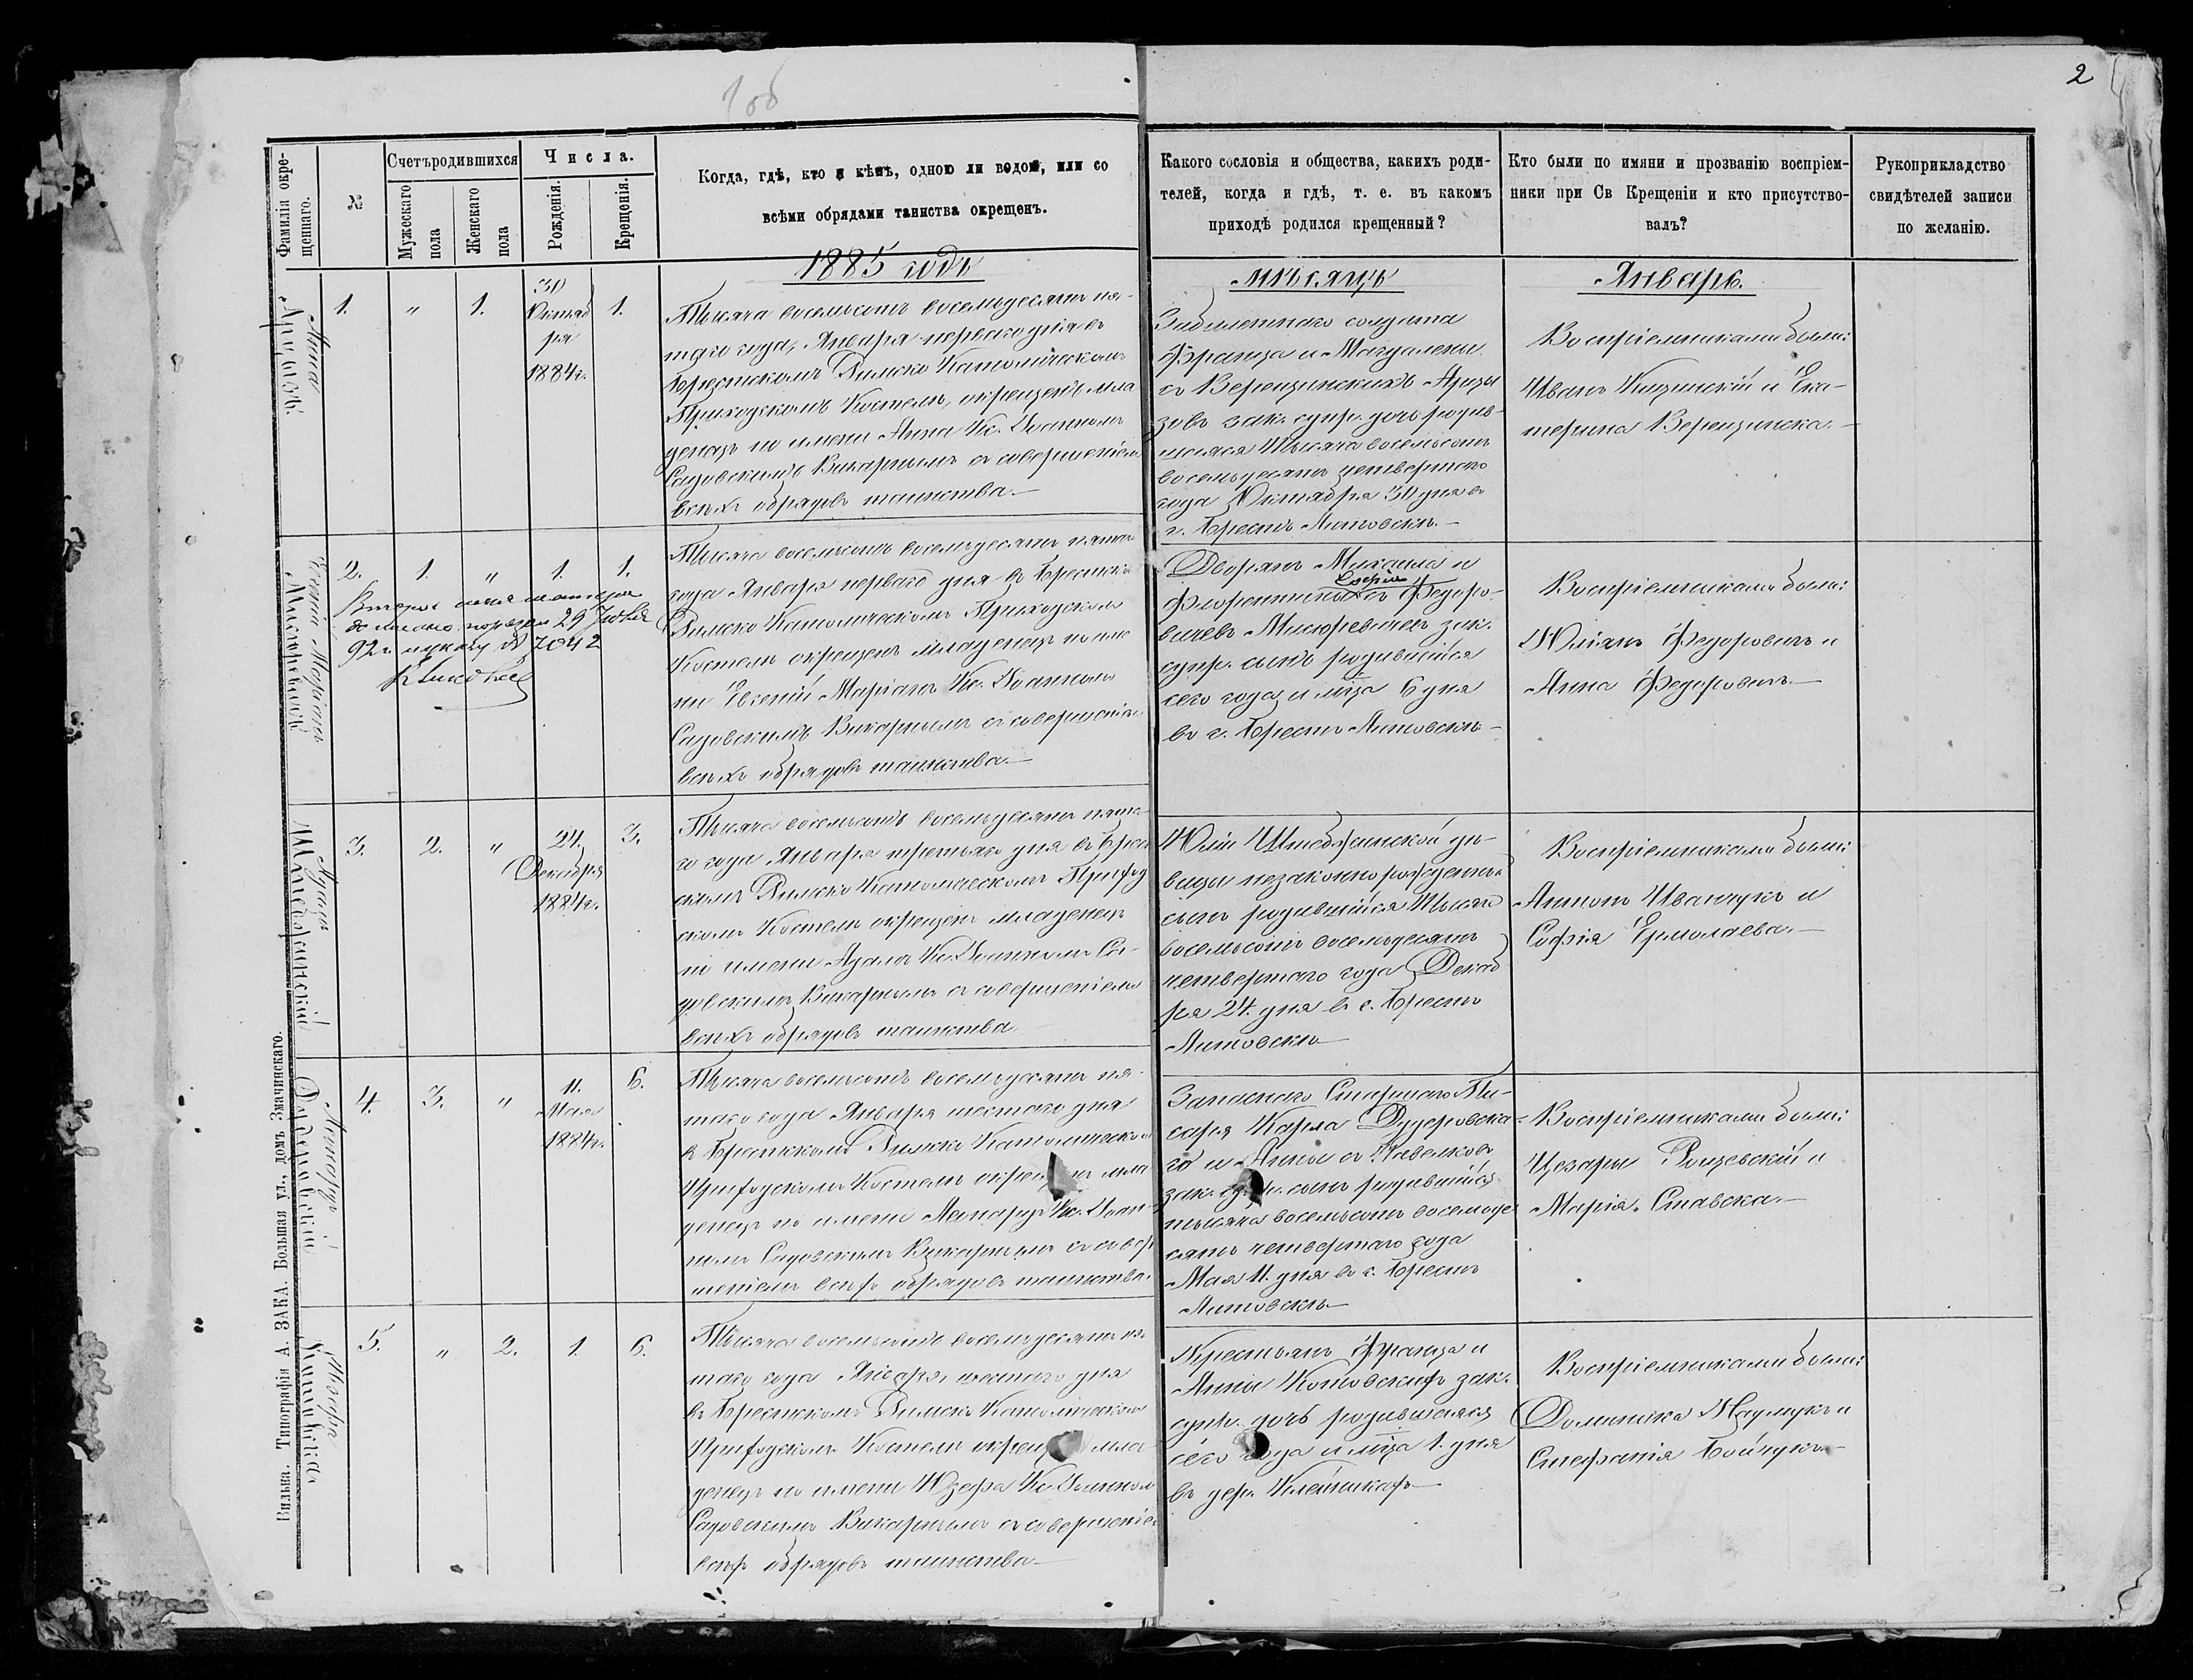 1об
2
Фамилія окре-
щеннаго.
№
Счетъ родившихся
Мужескаго
пола
Женскаго
пола
Числа.
Рожденія.
Крещенія.
Когда, гдѣ, кто и кѣмъ, одною ли водою, или со
всѣми обрядами таинства окрещенъ.
Какого сословія и общества, какихъ роди-
телей, когда и гдѣ, т. е. въ какомъ
приходѣ родился крещенный?
Кто были по имяни и прозванію воспріем-
ники при Св Крещеніи и кто присутство-
валъ?
Рукоприкладство
свидѣтелей записи
по желанію.
1885 годъ
мѣсяцъ
Январь.
Анна
1.
"
1.
30
Октяб
ря
1884г.
1.
Тысяча восемьсотъ восемьдесятъ пя-
таго года, Января перваго дня въ
Брестскомъ Римско Католическомъ
Приходскомъ Костелѣ, окрещенъ мла
денецъ по имени Анна Кс. Іоанномъ
Садовскимъ Викарнымъ съ совершеніемъ
всѣхъ обрядовъ таинства.—
Забилетнаго солдата
Франца и Магдалены
съ Верещинскихъ
зак. супр. дочь родив-
шаяся тысяча восемьсотъ
восемьдесятъ четвертаго
года Октября 30 дня въ
г. Брестъ Литовскѣ.—
Воспріемниками были:
Иванъ и Ека-
терина Верещинска.—
Евгеній Маріанъ
Мисюревичъ
2.
1.
"
1.
1.
Второе имя матери
дописано 29 Іюля
92г. № 7042
Тысяча восемьсотъ восемьдесятъ пятаго
года Января перваго дня въ Брестскомъ
Римско Католическомъ Приходскомъ
Костелѣ окрещенъ младенецъ по име
ни Евгеній Маріанъ Кс. Іоанномъ
Садовскимъ Викарнымъ съ совершеніемъ
всѣхъ обрядовъ таинства.—
Дворянъ Михаила и
Софіи
Флорентины съ Федоро-
вичевъ Мисюревичевъ зак.
супр. сынъ родившійся
сего года и мца 6 дня
въ г. Брестъ Литовскѣ—
Воспріемниками были:
Юліанъ Федоровичъ и
Анна Федоровичъ.—
Адамъ
3.
2.
"
24.
Декабря
1884г.
3.
Тысяча восемьсотъ восемьдесятъ пята-
го года Января третьяго дня въ Брест
скомъ Римско Католическомъ Приход
скомъ Костелѣ окрещенъ младенецъ
по имени Адамъ Кс. Іоанномъ Са-
довскимъ Викарнымъ съ совершеніемъ
всѣхъ обрядовъ таинства
Юліи дѣ-
вицы незаконнорожденный
сынъ родившійся тысяча
восемьсотъ восемьдесятъ
четвертаго года Декаб
ря 24. дня въ г. Брестъ
Литовскѣ—
Воспріемниками были:
Антонъ Иванчукъ и
Софія Ермолаева.—
Макаръ
Дудеровскій
4.
3.
"
11.
Мая
1884г.
6.
Тысяча восемьсотъ восемьдесятъ пя-
таго года Января шестаго дня
въ Брестскомъ Римско Католическомъ
Приходскомъ Костелѣ мла
денецъ по имени Макаръ Кс. Іоан-
номъ Садовскимъ Викарнымъ съ совер
шеніемъ всѣхъ обрядовъ таинства.
Запаснаго Старшаго Пи-
саря Карла Дудеровска-
го и Анны съ Павелковъ
зак. супр. сынъ родившійся
тысяча восемьсотъ восемьде
сятъ четвертаго года
Мая 11. дня въ г. Брестъ
Литовскѣ—
Воспріемниками были:
Цезары и
Марія Ставска.—
Юзефа
Котовска.
5.
"
2.
1.
6.
Тысяча восемьсотъ восемьдесятъ пя
таго года Января шестаго дня
въ Брестскомъ Римско Католическомъ
Приходскомъ Костелѣ мла
денецъ по имени Юзефа Кс. Іоанномъ
Садовскимъ Викарнымъ съ совершеніемъ
всѣхъ обрядовъ таинства—
Крестьянъ Франца и
Анны Котовскихъ зак.
супр. дочь родившаяся
сего года и мца 1. дня
въ дер. Клейникахъ—
Воспріемниками были:
Доминика и
Стефанія Бойчукъ.—
Вильна. Типографія А. ЗАКА. Большая ул., домъ Змачинскаго.